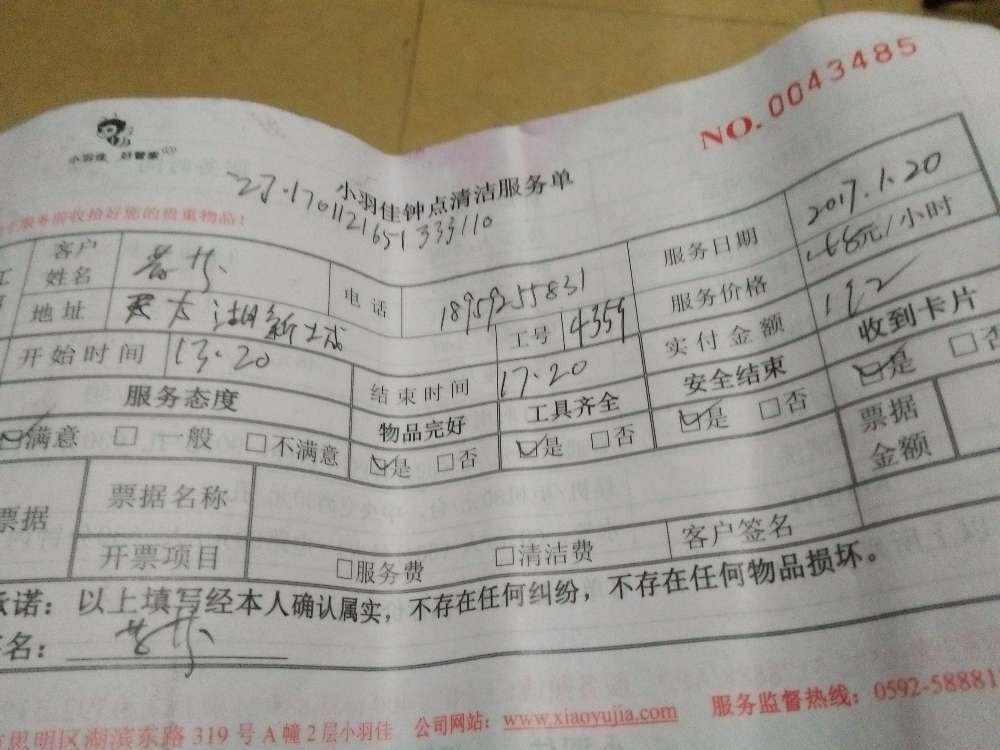 NO.0043485
小羽佳 好管家
小羽佳钟点清洁服务单
服务前收拾好您的贵重物品!
客户姓名 电话 18959255831 服务日期 2017.1.20
地址 工号 4359 服务价格 48元/小时
开始时间 13.20 结束时间 17.20 实付金额 192
服务态度 物品完好 □工具齐全 安全结束 收到卡片
☑满意 □一般 □不满意 ☑是 □否 ☑是 □否 ☑是 □否 ☑是 □否
票据 票据名称 票据金额
开票项目 □服务费 □清洁费 客户签名
承诺:以上填写经本人确认属实,不存在任何纠纷,不存在任何物品损坏。
签名:
思明区湖滨东路 319 号 A 幢 2 层小羽佳 公司网站:www.xiaoyujia.com 服务监督热线:0592-58881